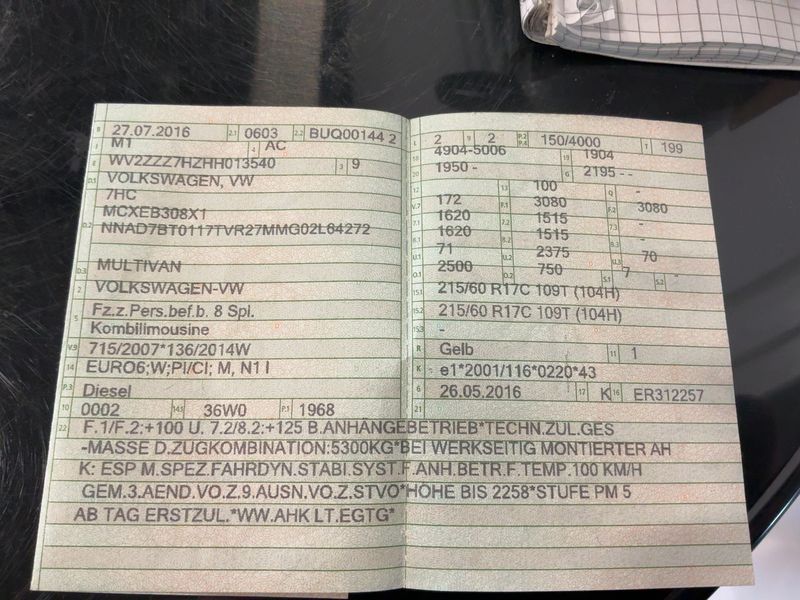 B 27.07.2016 2.1 0603 2.2 BUQ00144 2
J M1 4 AC
E WV2ZZZ7HZHH013540 3 9
D.1 VOLKSWAGEN, VW
7HC
D.2 MCXEB308X1
NNAD7BT0117TVR27MMG02L64272
D.3 MULTIVAN
2 VOLKSWAGEN-VW
5 Fz.z.Pers.bef.b. 8 Spl.
Kombilimousine
V.9 715/2007*136/2014W
14 EURO6;W;PI/CI; M, N1 I
P.3 Diesel
10 0002 14.1 36W0 P.1 1968
L 2 9 2 P.2 P.4 150/4000 T 199
18 4904-5006 19 1904
20 1950 - G 2195 - -
12 - 13 100 Q -
V.7 172 F.1 3080 F.2 3080
7.1 1620 7.2 1515 7.3 -
8.1 1620 8.2 1515 8.3 -
U.1 71 U.2 2375 U.3 70
O.1 2500 O.2 750 S.1 7 S.2 -
15.1 215/60 R17C 109T (104H)
15.2 215/60 R17C 109T (104H)
15.3 -
R Gelb 11 1
K e1*2001/116*0220*43
6 26.05.2016 17 K 16 ER312257
21
22 F.1/F.2:+100 U. 7.2/8.2:+125 B.ANHÄNGEBETRIEB*TECHN.ZUL.GES
-MASSE D.ZUGKOMBINATION:5300KG*BEI WERKSEITIG MONTIERTER AH
K: ESP M.SPEZ.FAHRDYN.STABI.SYST.F.ANH.BETR.F.TEMP.100 KM/H
GEM.3.AEND.VO.Z.9.AUSN.VO.Z.STVO*HÖHE BIS 2258*STUFE PM 5
AB TAG ERSTZUL.*WW.AHK LT.EGTG*